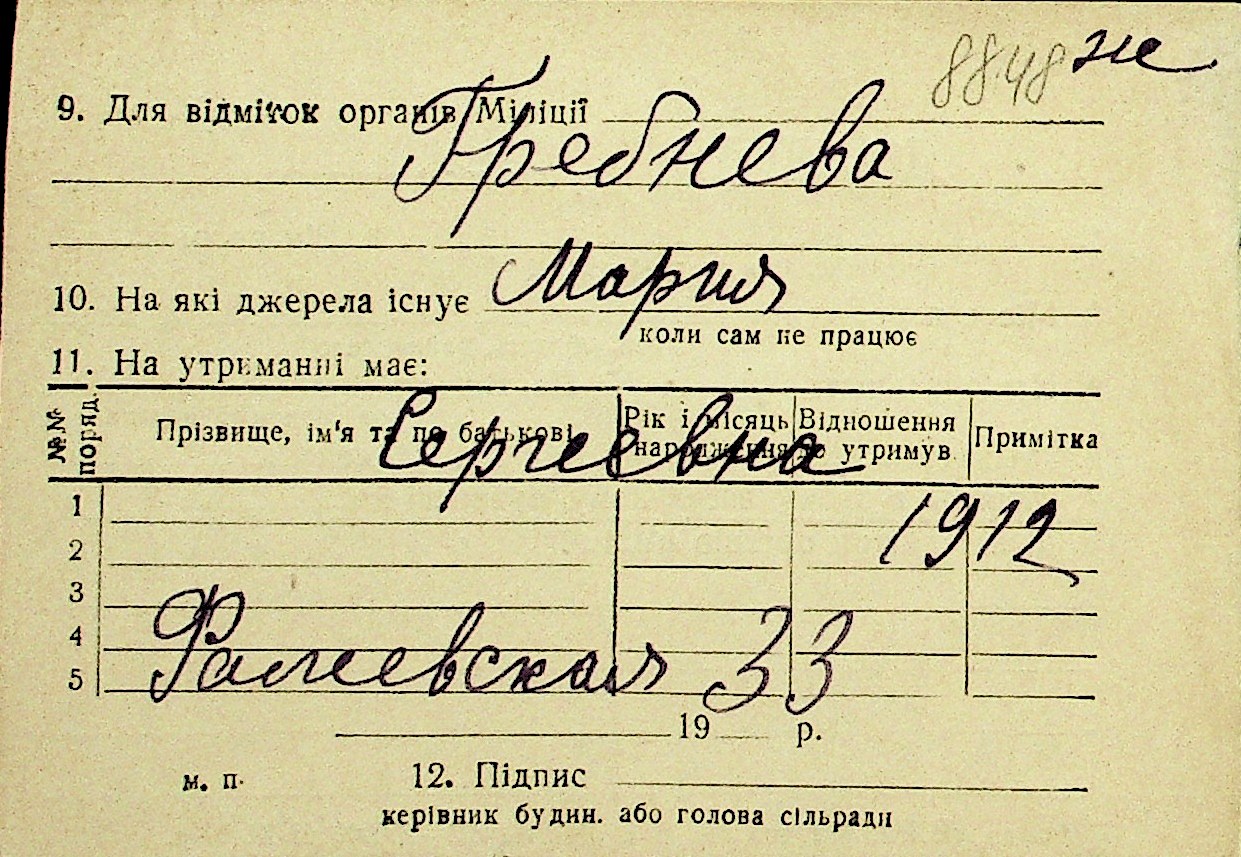 8848 же
9. Для відміток органів Міліції
Гребнева
10. На які джерела існує Мария
коли сам не працює
11. На утриманні має:
№№ поряд. Прізвище, ім'я та по батькові Рік і місяць народження Відношення до утримув. Примітка
Сергеевна
1
1912
2
3
4
Фалеевская 33
5
19 р.
м. п. 12. Підпис
керівник будин. або голова сільради